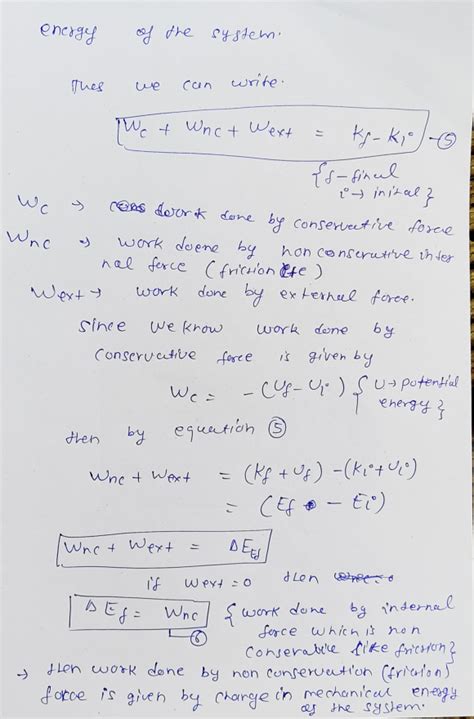 energy of the system.
Thus we can write.
Wc + Wnc + Wext = Kf - Ki - ⑤
{f - final
i → inital}
Wc → work done by conservative force
Wnc → work doene by non conservative inter
nal force (friction etc)
Wext → work done by external force.
Since we know work done by
conservative force is given by
Wc = - (Uf - Ui) { U → potential
energy }
then by equation ⑤
Wnc + Wext = (Kf + Uf) - (Ki + Ui)
= (Ef - Ei)
Wnc + Wext = ΔE
if Wext = 0 then
ΔEf = Wnc { work done by internal
force which is non
conserative like friction}
⑥
→ then work done by non conservation (friction)
force is given by change in mechanical energy
of the system.